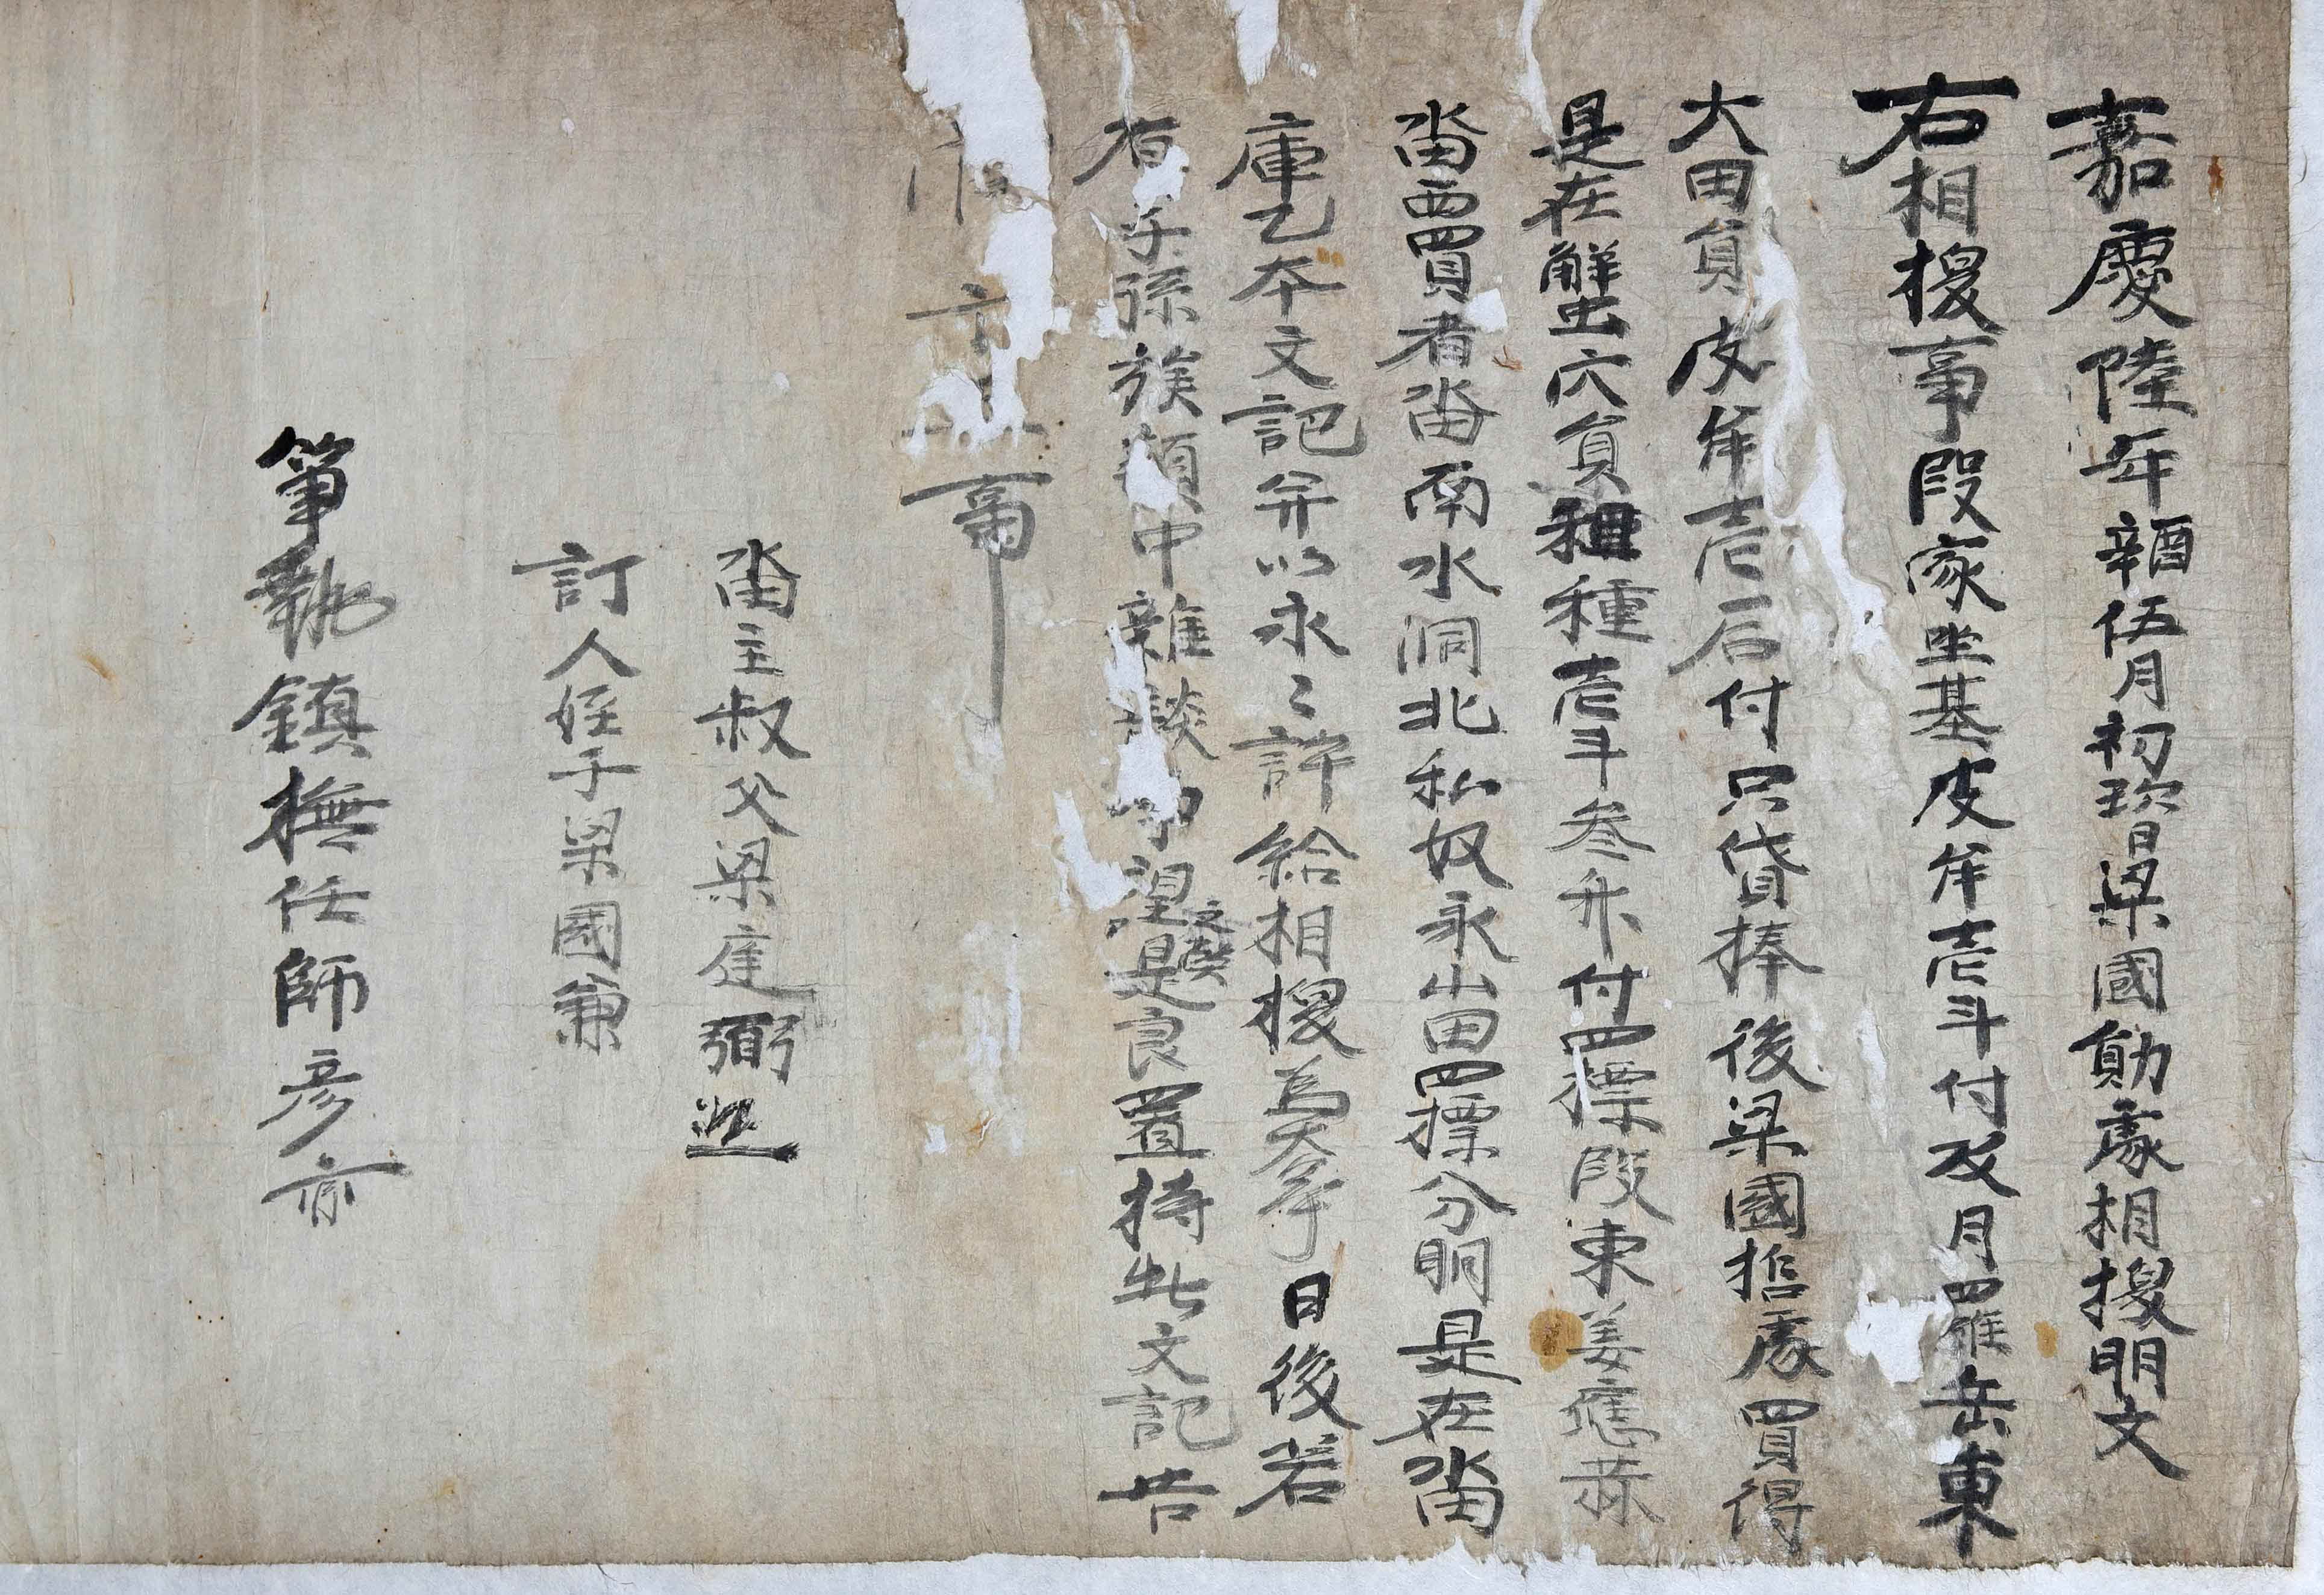 嘉慶陸年辛酉伍月初玖日梁國勛處相換明文
右相換事段家坐基皮牟壱斗付及月羅岳東
大田負皮牟壱石付只貸捧後梁國哲處買得
是在蟹出穴負租種壱斗叁升付四標段東姜應赫
畓西買者畓南水洞北私奴永山田四標分明是在畓
庫乙本文記并以永〻許給相換為去乎日後若
有子孫族類中雜談 文契是良置持此文記告
官
畓主叔父梁廷弼
訂人侄子梁國兼
筆執鎮撫任師彦